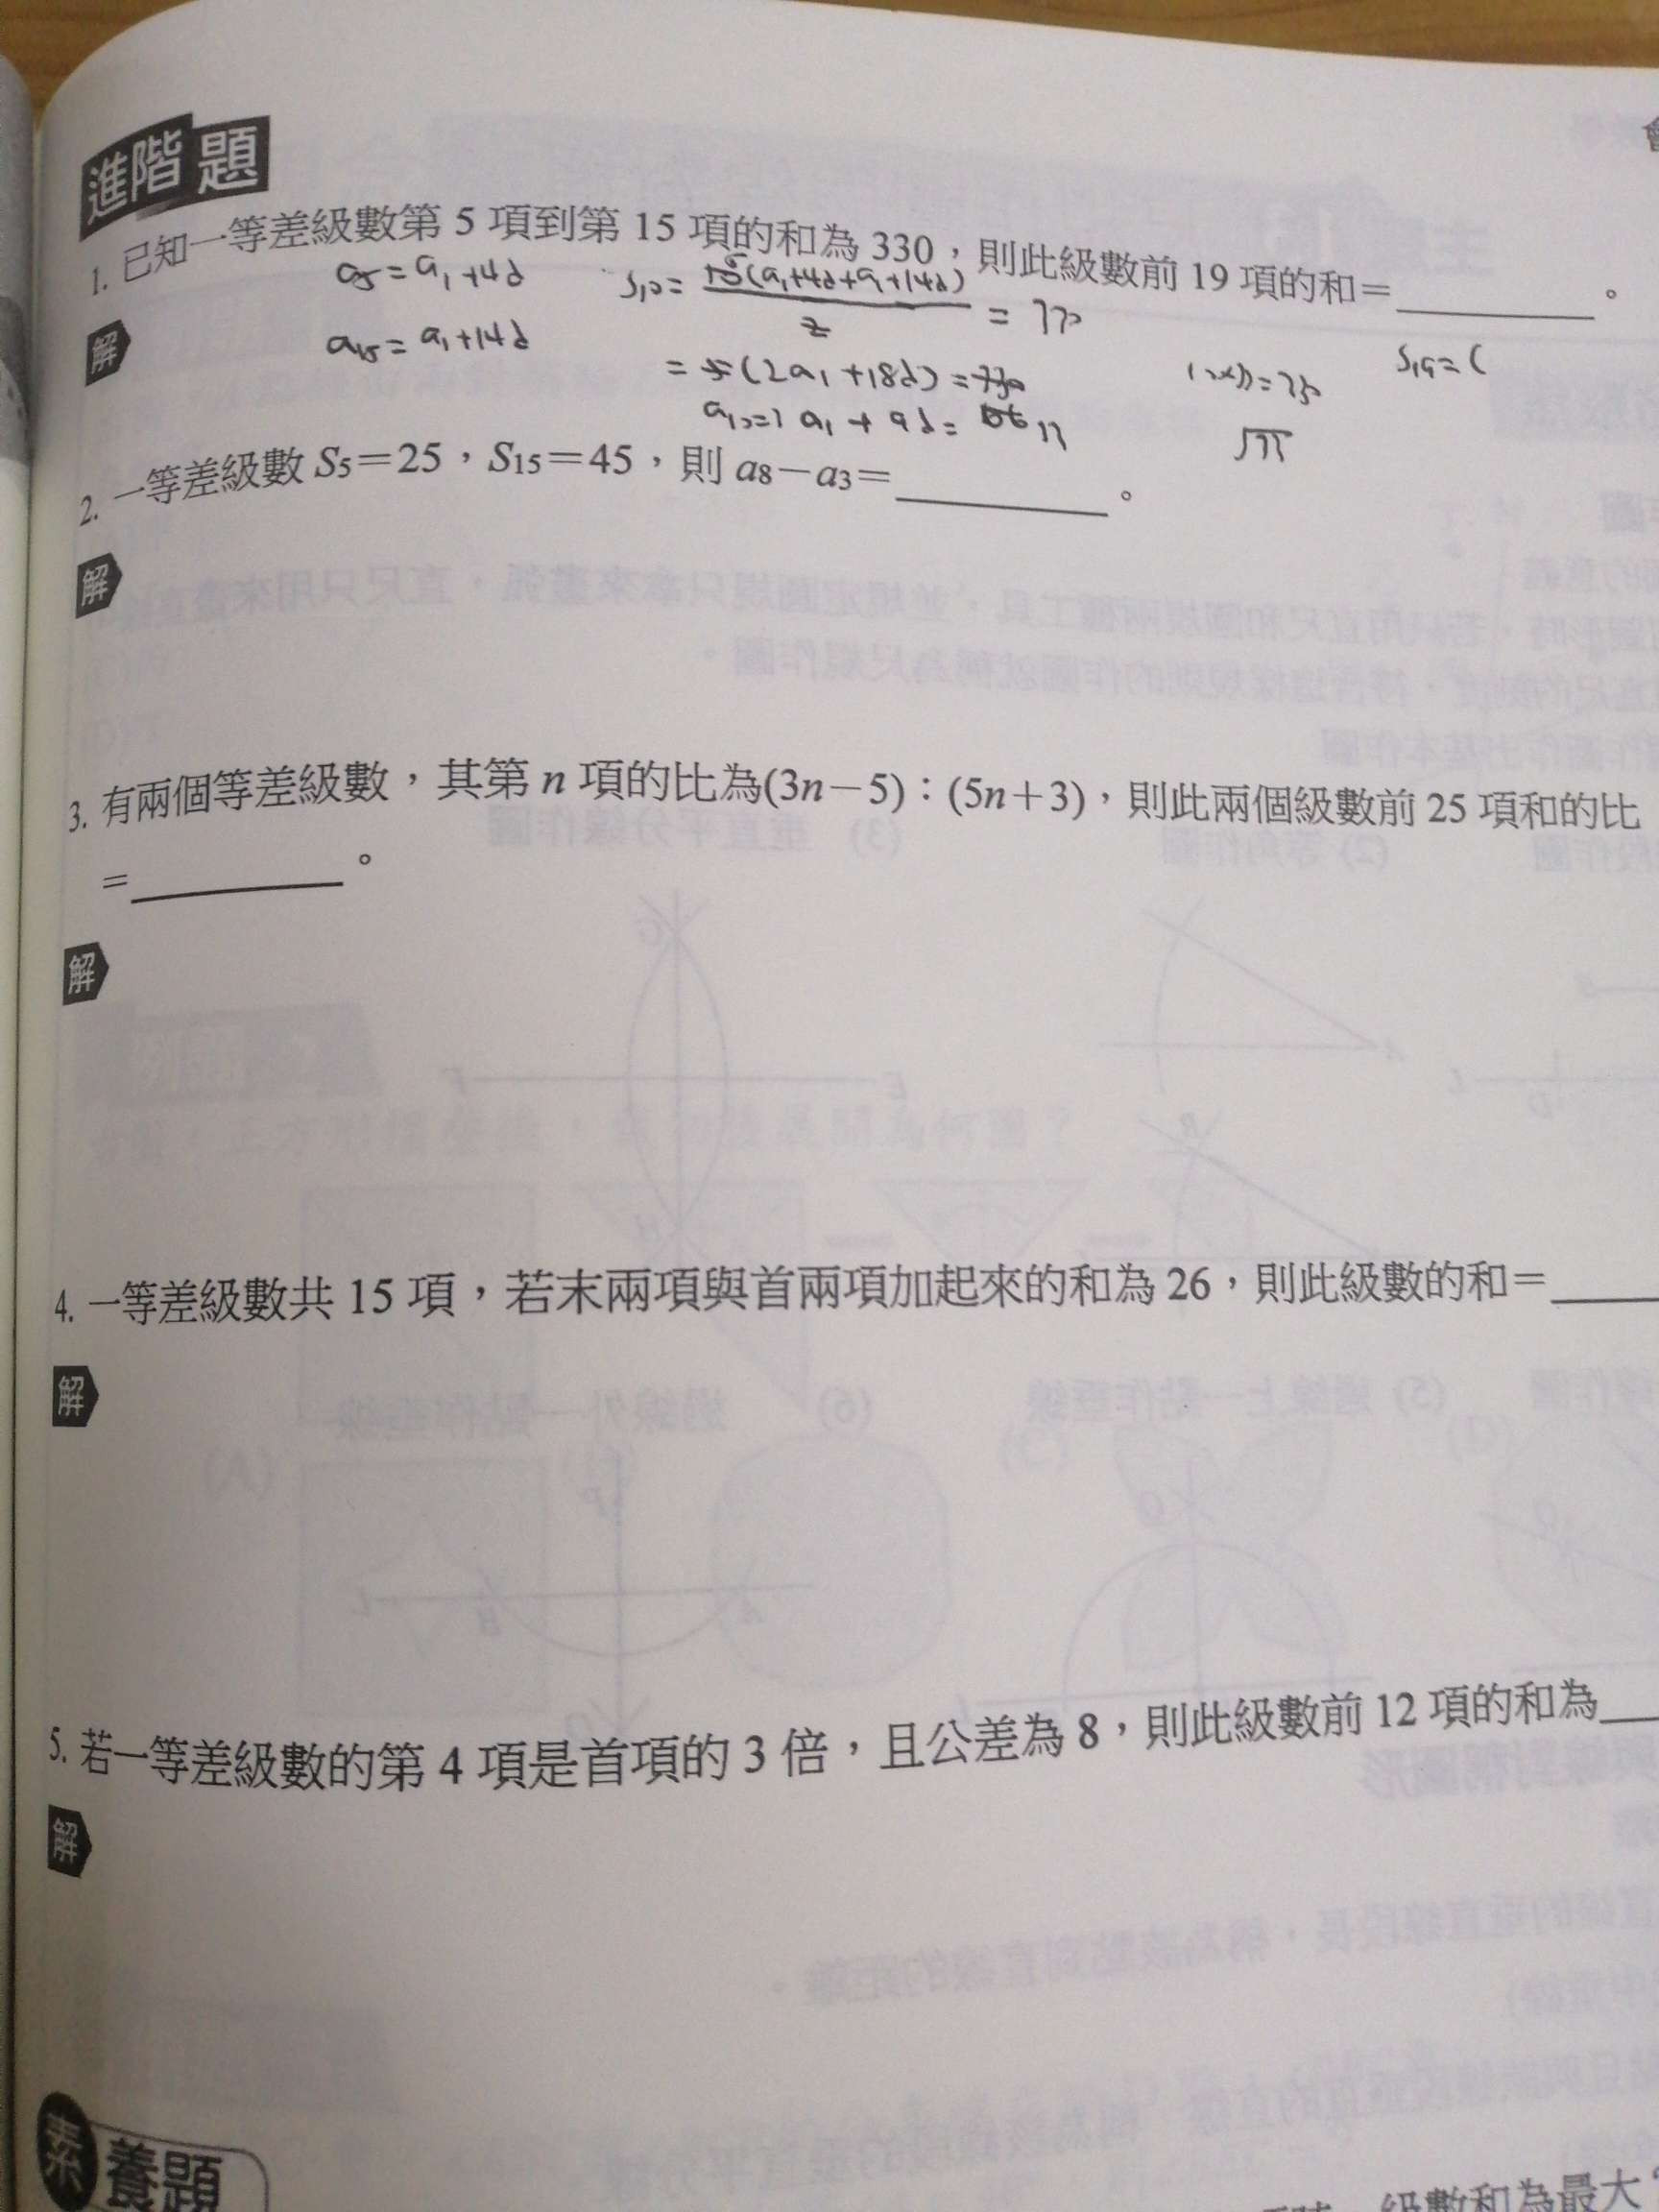 進階題
1. 已知一等差級數第 5 項到第 15 項的和為 330，則此級數前 19 項的和＝________。
解
a₅=a₁+4d
a₁₅=a₁+14d
(a₁+4d+a₁+14d)
2
=5(2a₁+18d)=330
a₁+9d=
S₁₉=(
2. 一等差級數 S₅＝25，S₁₅＝45，則 a₈－a₃＝________。
解
3. 有兩個等差級數，其第 n 項的比為(3n－5)：(5n＋3)，則此兩個級數前 25 項和的比
＝________。
解
4. 一等差級數共 15 項，若末兩項與首兩項加起來的和為 26，則此級數的和＝____
解
5. 若一等差級數的第 4 項是首項的 3 倍，且公差為 8，則此級數前 12 項的和為____
解
素養題
級數和為最大